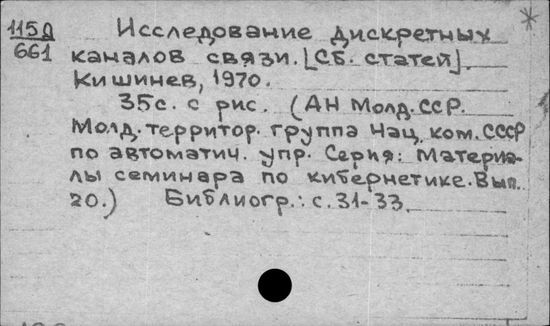 115Д Исследование дискретных
661 каналов связи. [Сб. статей].
Кишинев, 1970.
35с. с рис. (АН Молд.ССР.
Молд. территор. группа Нац. ком. СССР
по автоматич. упр. Серия: Материа-
лы семинара по кибернетике. Вып.
20.) Библиогр.: с. 31-33.